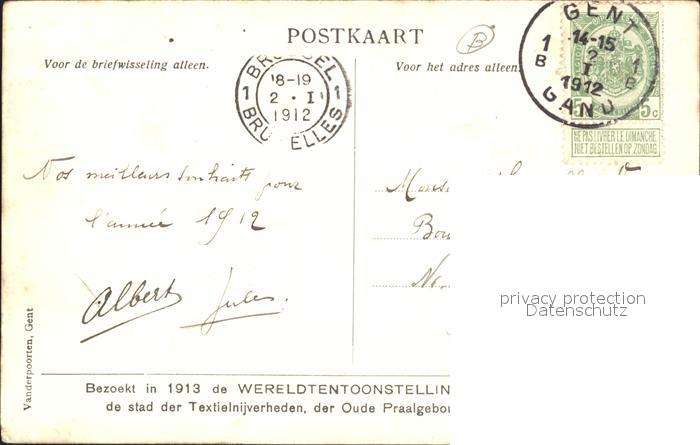 POSTKAART
Voor de briefwisseling alleen.
Voor het adres alleen.
BRUSSEL
18-19
2 · I
1912
1 1
BRUXELLES
GENT
14-15
2
I
1912
1 B
1 B
GAND
5 5c
NE PAS LIVRER LE DIMANCHE
NIET BESTELLEN OP ZONDAG
B
Nos meilleurs souhaits pour
l'année 1912
Albert Jules.
Vanderpoorten, Gent
Bezoekt in 1913 de WERELDTENTOONSTELLIN
de stad der Textielnijverheden, der Oude Praalgebou
privacy protection
Datenschutz